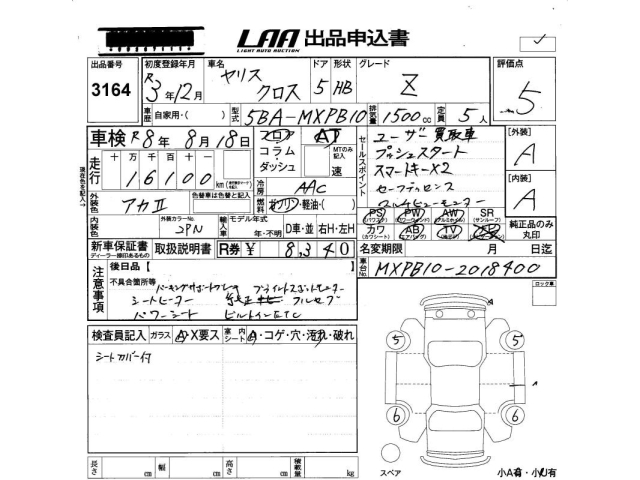 LAA 出品申込書
LIGHT AUTO AUCTION
出品番号 初度登録年月 車名 ドア 形状 グレード 評価点
3164 R3年12月 ヤリスクロス 5 HB Z 5
車歴 自家用・( ) 型式 5BA-MXPB10 排気量 1500cc 定員 5人
車検 R8年8月18日 フロア AT
コラム・ダッシュ MTのみ記入 速
走行 十万千百十
16100 km
冷房 AAC
外装色 アカII 色替車は色替と記入
燃料 ガソリン・軽油・( )
外装カラーNo. 2PN
輸入車 モデル年式 年・不明 D車・並 右H・左H
セールスポイント
ユーザー買取車
プッシュスタート
スマートキーX2
セーフティセンス
マルチビューモニター
PS PW AW SR
(パワステ) (サンルーフ)
カワ AB TV
(カワシート)
純正品のみ丸印
[外装] A
[内装] A
新車保証書 取扱説明書 R券 ¥ 8,340
ディーラー捺印あるもの
名変期限 月 日迄
車台No. MXPB10-2018400
注意事項
後日品【 】
不具合箇所等
パーキングサポートブレーキ ブラインドスポットモニター
シートヒーター フルセグ
パワーシート ビルトインETC
ロック車
検査員記入 ガラス A・X要ス 室内シート A・コゲ・穴・汚れ・破れ
シートカバー付
5 5
6 6
A
スペア
小A有・小U有
長さ cm 幅 cm 高さ cm 積載量 kg